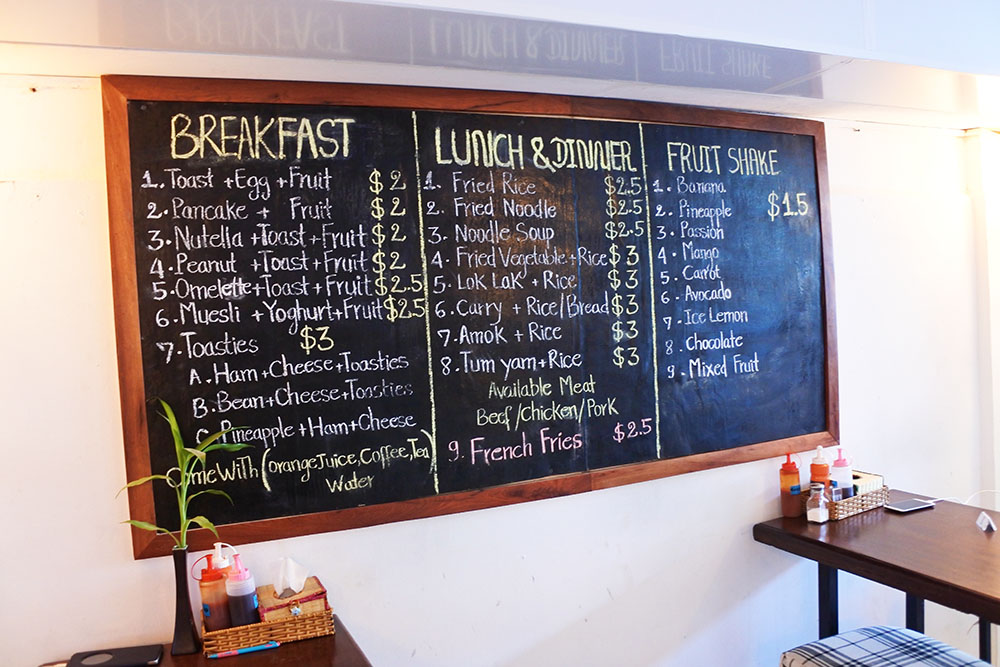 BREAKFAST
1. Toast + Egg + Fruit $2
2. Pancake + Fruit $2
3. Nutella + Toast + Fruit $2
4. Peanut + Toast + Fruit $2
5. Omelette + Toast + Fruit $2.5
6. Muesli + Yoghurt + Fruit $2.5
7. Toasties $3
A. Ham + Cheese + Toasties
B. Bean + Cheese + Toasties
C. Pineapple + Ham + Cheese
Come With (Orange Juice, Coffee, Tea)
Water
LUNCH & DINNER
1. Fried Rice $2.5
2. Fried Noodle $2.5
3. Noodle Soup $2.5
4. Fried Vegetable + Rice $3
5. Lok Lak + Rice $3
6. Carry + Rice/Bread $3
7. Amok + Rice $3
8. Tum yam + Rice $3
Available Meat
Beef/Chicken/Pork
9. French Fries $2.5
FRUIT SHAKE
1. Banana
2. Pineapple $1.5
3. Passion
4. Mango
5. Carrot
6. Avocado
7. Ice Lemon
8. Chocolate
9. Mixed Fruit